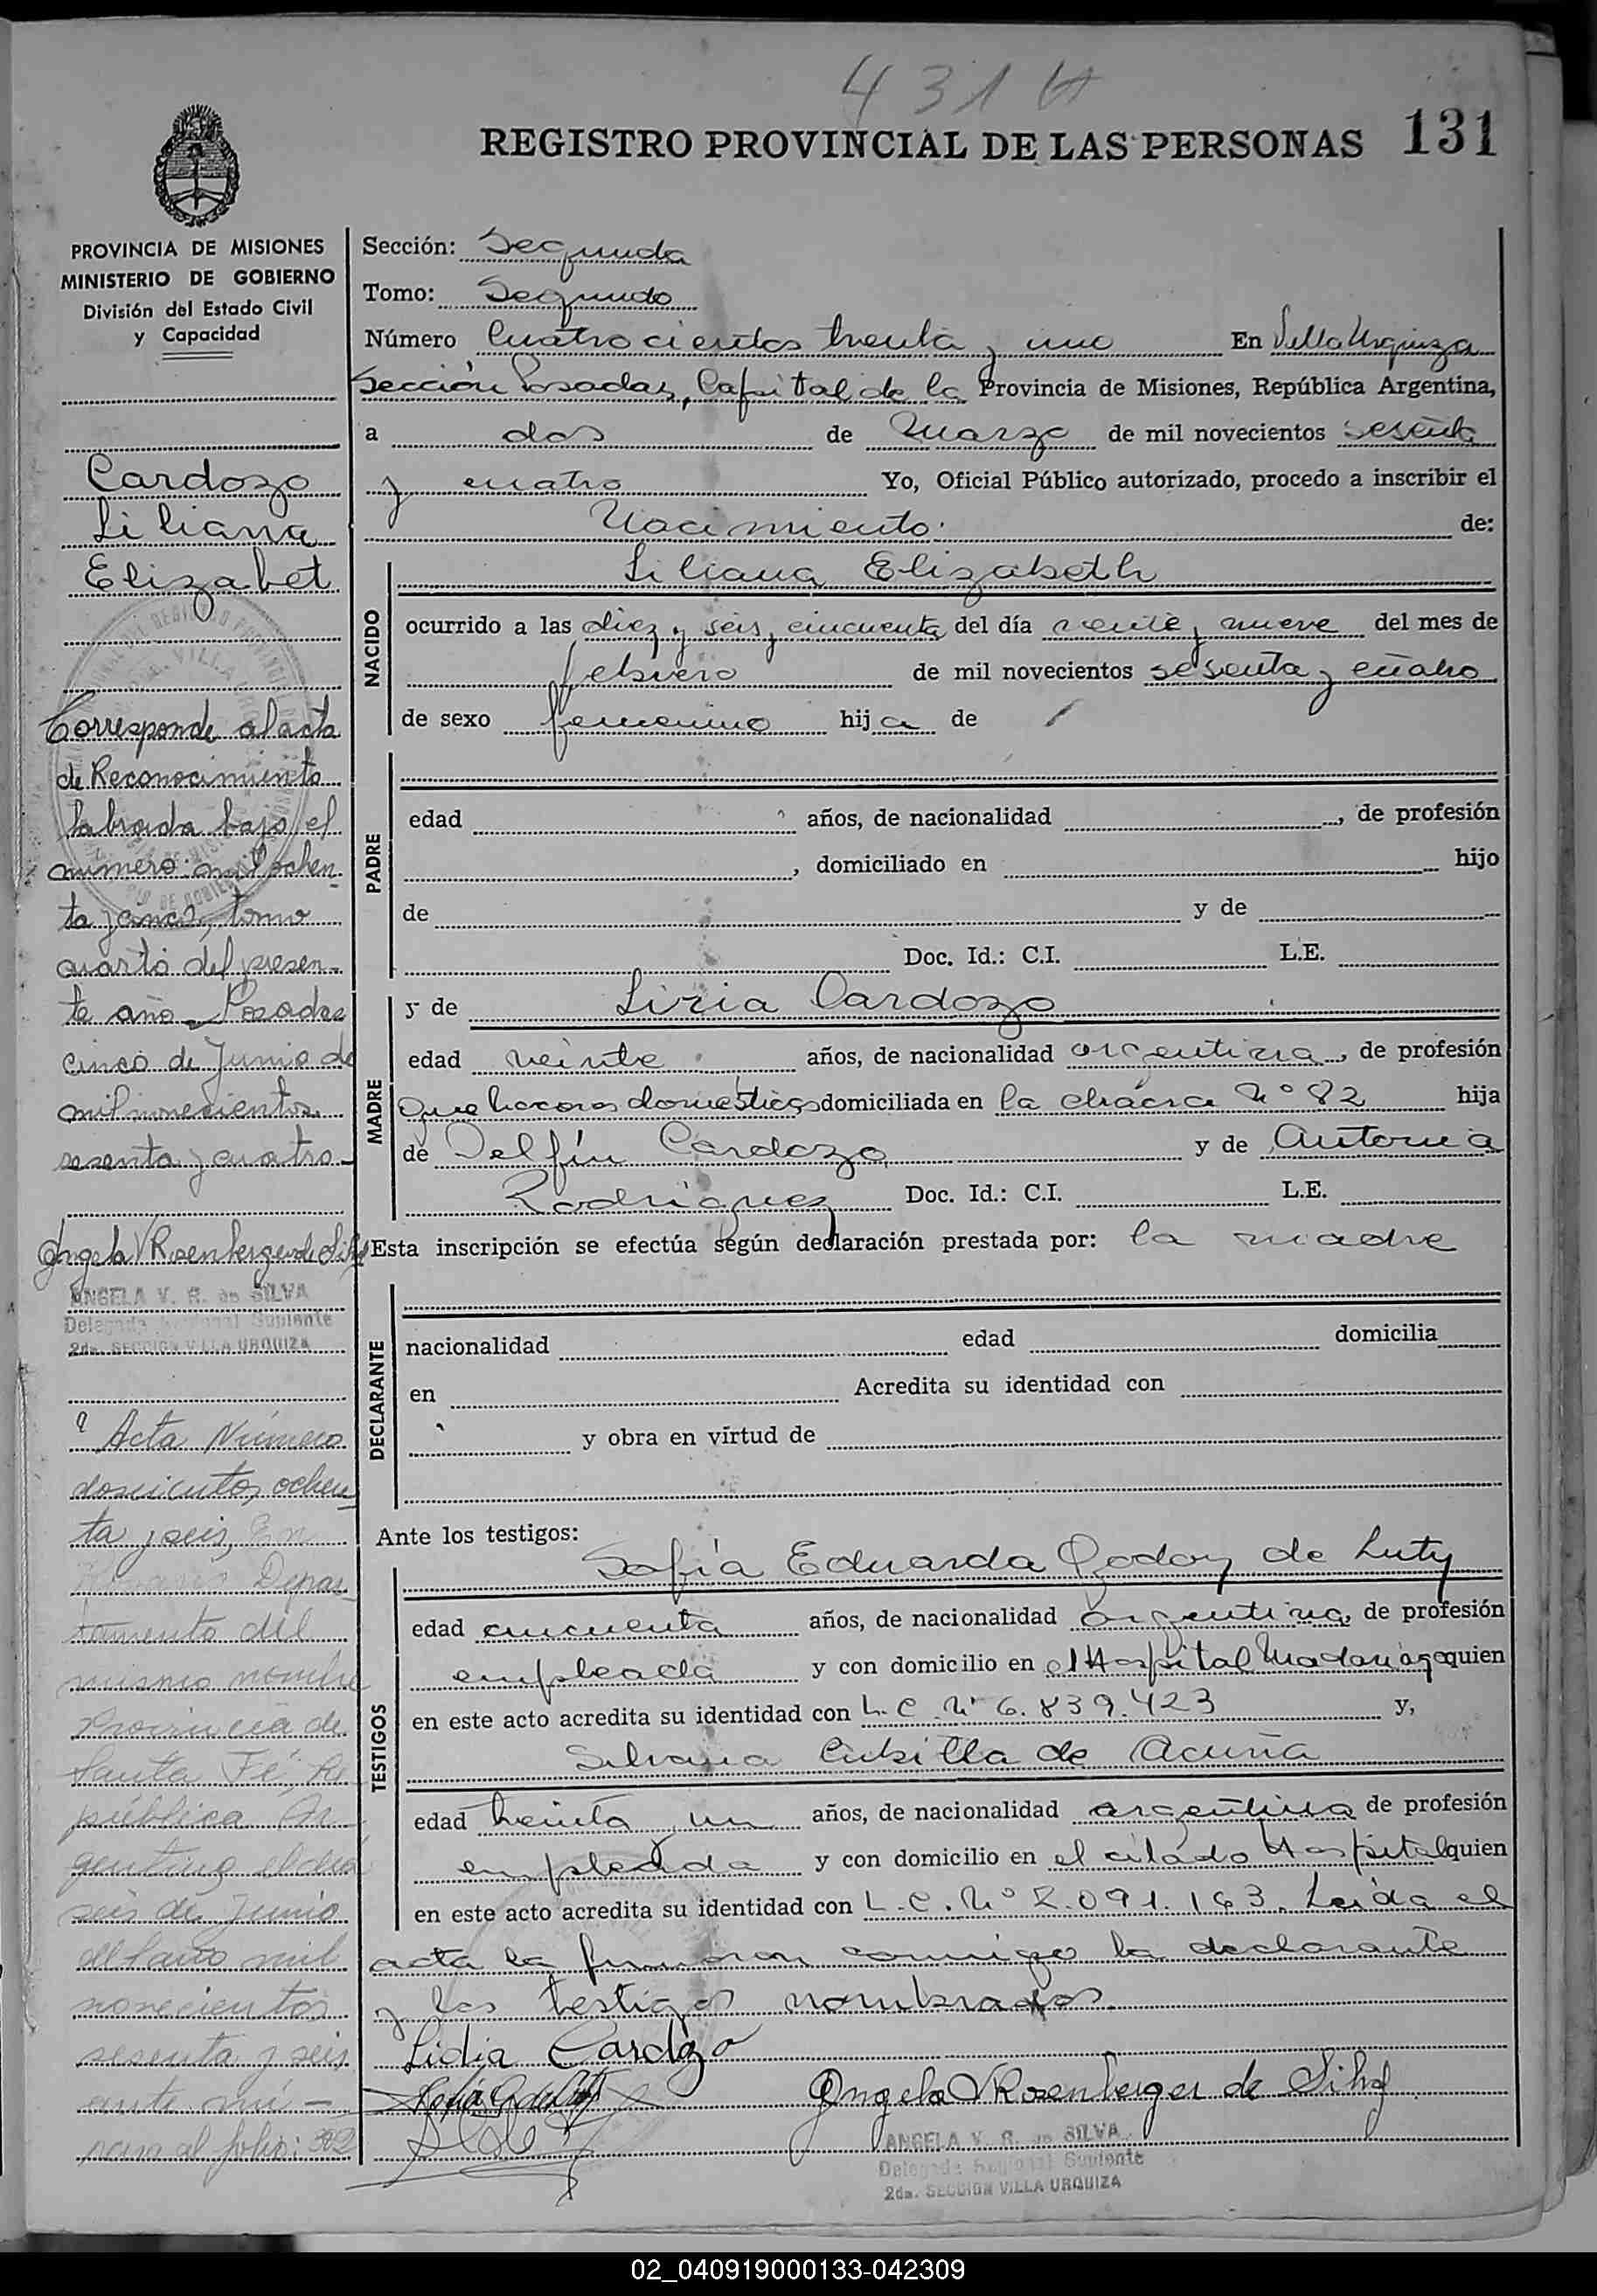 431 H
REGISTRO PROVINCIAL DE LAS PERSONAS 131
PROVINCIA DE MISIONES
MINISTERIO DE GOBIERNO
División del Estado Civil
y Capacidad
Cardozo
Liliana
Elizabet
Corresponde al acta
de Reconocimiento
labrada bajo el
numero mil ochen-
ta y cinco, tomo
cuarto del presen-
te año - Posadas
cinco de Junio de
mil novecientos
sesenta y cuatro
Angela V Rosenberger de Silva
ANGELA V. R. de SILVA
Delegada Regional Suplente
2da. SECCION VILLA URQUIZA
Acta Número
doscientos ochen-
ta y seis, En
Depar-
tamento del
mismo nombre
Provincia de
Santa Fé, Re-
pública Ar-
gentina, el dia
seis de Junio
del año mil
novecientos
sesenta y seis
ante mí -
pasa al folio: 302
Sección: Segunda
Tomo: Segundo
Número Cuatrocientos treinta y uno En Villa Urquiza
Sección Posadas, Capital de la Provincia de Misiones, República Argentina,
a dos de Marzo de mil novecientos sesenta
y cuatro Yo, Oficial Público autorizado, procedo a inscribir el
Nacimiento de:
NACIDO
Liliana Elizabeth
ocurrido a las diez y seis y cincuenta del día veinte y nueve del mes de
febrero de mil novecientos sesenta y cuatro
de sexo femenino hija de /
PADRE
edad años, de nacionalidad , de profesión
, domiciliado en hijo
de y de
Doc. Id.: C.I. L.E.
MADRE
y de Liria Cardozo
edad veinte años, de nacionalidad argentina, de profesión
Quehaceres domésticos domiciliada en la chácra Nº 82 hija
de Delfín Cardozo y de Antonia
Rodriguez Doc. Id.: C.I. L.E.
Esta inscripción se efectúa según declaración prestada por: la madre
DECLARANTE
nacionalidad edad domicilia
en Acredita su identidad con
y obra en virtud de
Ante los testigos:
TESTIGOS
Sofía Eduarda Godoy de Luty
edad cincuenta años, de nacionalidad argentina, de profesión
empleada y con domicilio en el Hospital Madariaga quien
en este acto acredita su identidad con L.C. Nº 6.839.423 y,
Silvana Cubilla de Acuña
edad treinta y un años, de nacionalidad argentina de profesión
empleada y con domicilio en el citado Hospital quien
en este acto acredita su identidad con L.C. Nº 2.091.163. Leída el
acta la firmaron conmigo la declarante
y los testigos nombrados.
Lidia Cardozo
Angela V Rosenberger de Silva
ANGELA V. R. de SILVA
Delegada Regional Suplente
2da. SECCION VILLA URQUIZA
02_040919000133-042309